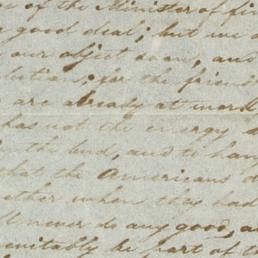 of the Minister of fin
good deal; but we
our object soon, and
lution; for the friend
are already at work
has not the energy
the bud, and to han
that the Americans d
ether when they had
never do any good, a
inevitably be part of t